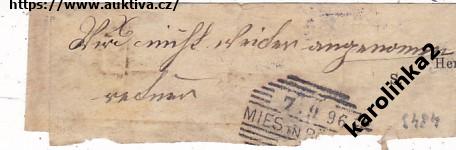 https://www.auktiva.cz/
Wird nicht weiter angenommen
Her
7 9 96
MIES IN B
karolinka2
8484